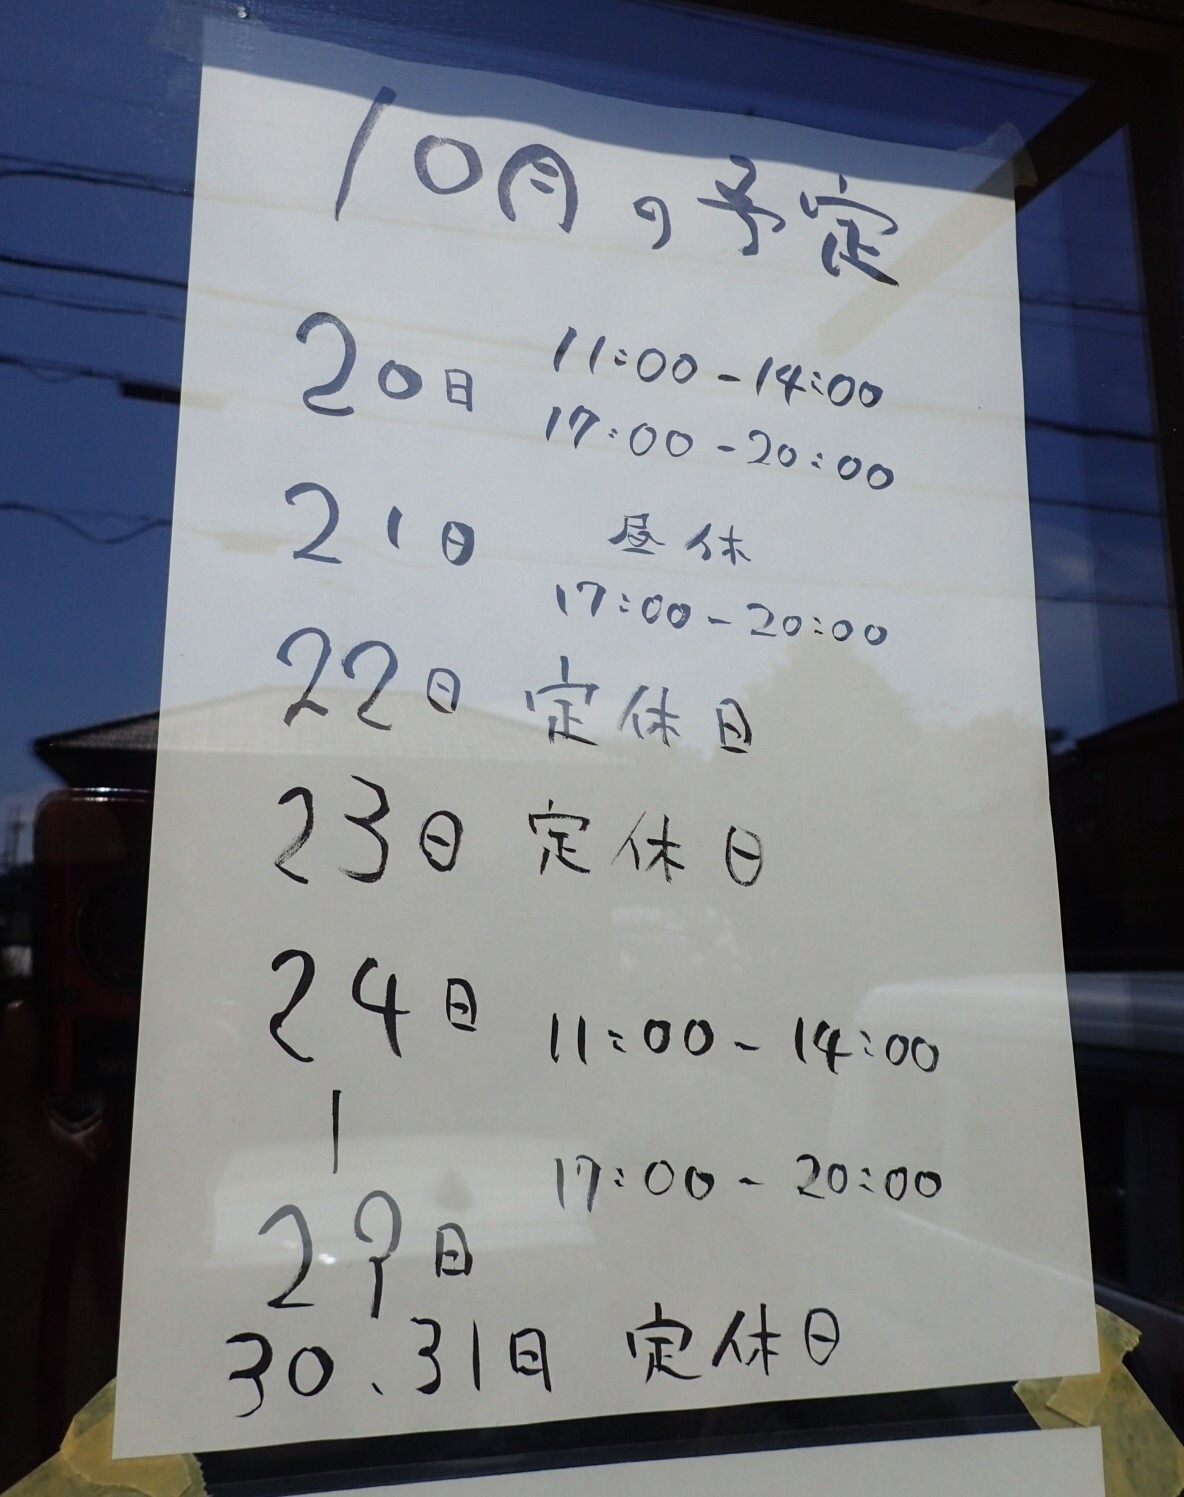 10月の予定
20日 11:00-14:00
17:00-20:00
21日 昼休
17:00-20:00
22日 定休日
23日 定休日
24日 11:00-14:00
|
17:00-20:00
29日
30、31日 定休日